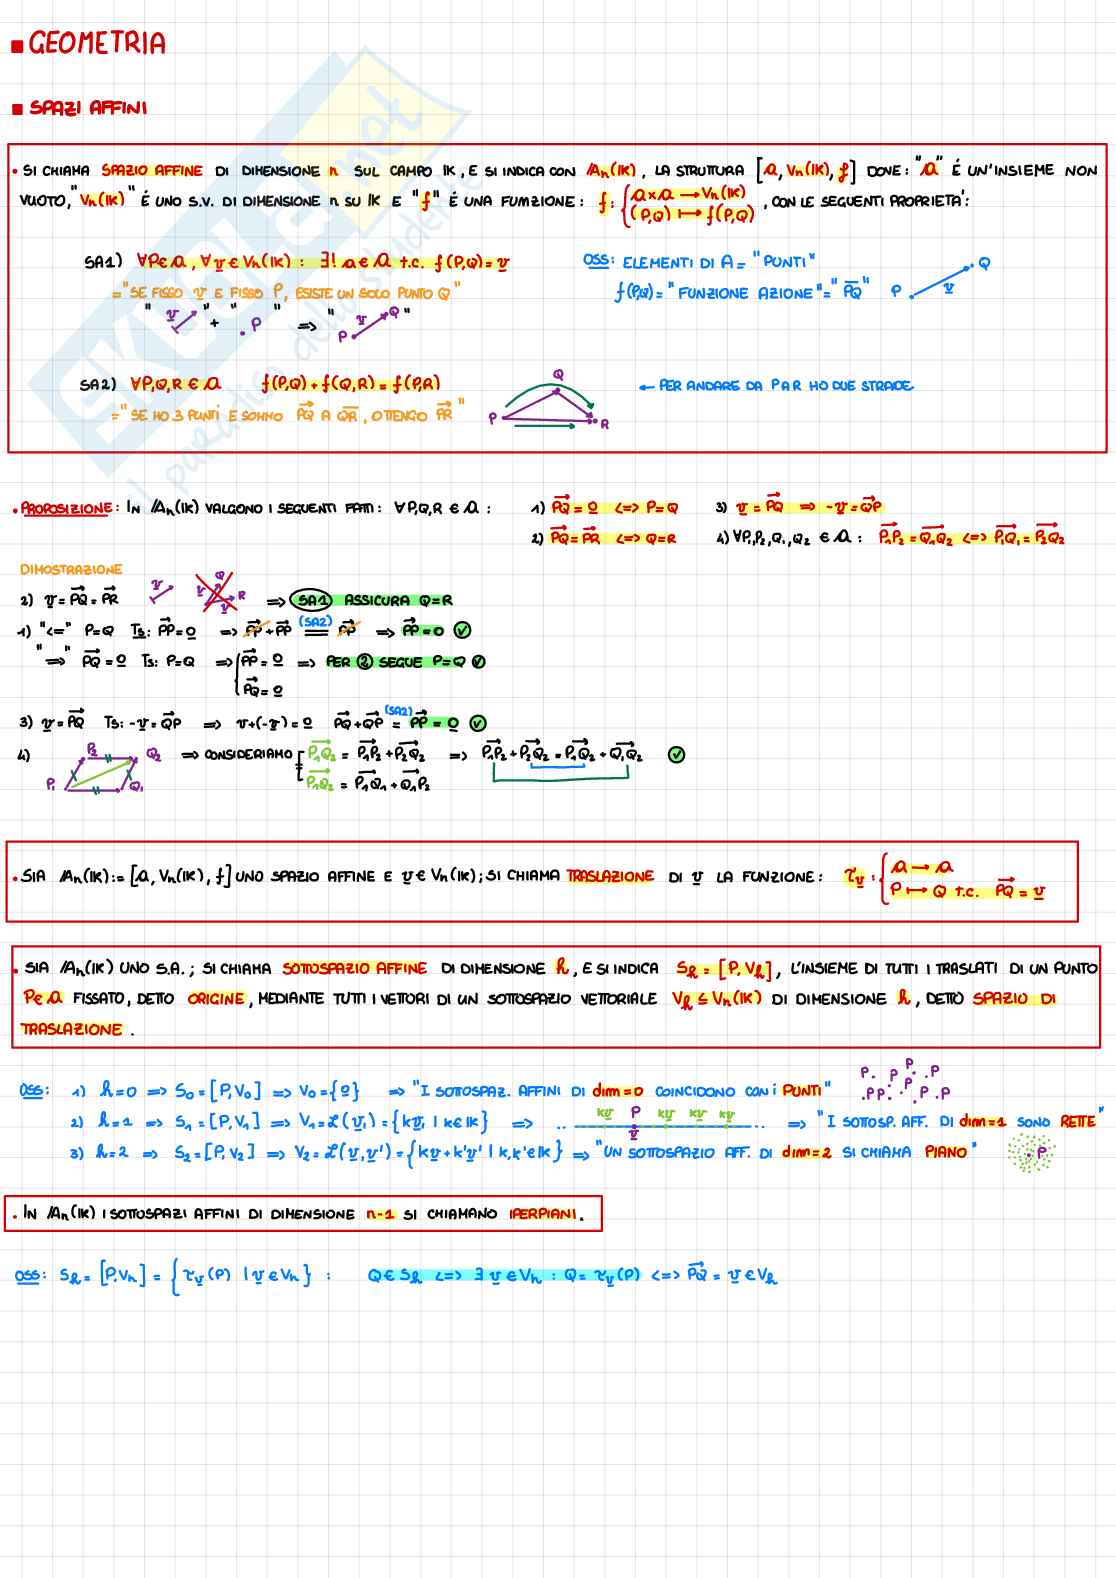 GEOMETRIA
SPAZI AFFINI
• SI CHIAMA SPAZIO AFFINE DI DIMENSIONE n SUL CAMPO IK, E SI INDICA CON /An(IK), LA STRUTTURA [a, Vn(IK), f] DOVE: "a" É UN'INSIEME NON
VUOTO, "Vn(IK)" É UNO S.V. DI DIMENSIONE n SU IK E "f" É UNA FUMZIONE: f: { a×a → Vn(IK)
(P,Q) ↦ f(P,Q) , CON LE SEGUENTI PROPRIETA':
SA1) ∀P∈a, ∀v∈Vn(IK): ∃! a∈a t.c. f(P,Q)=v
="SE FISSO v E FISSO P, ESISTE UN SOLO PUNTO Q"
"v" + "• P" => "P v Q"
OSS: ELEMENTI DI A = "PUNTI"
f(P,Q)= "FUNZIONE AZIONE"="PQ"
P v Q
SA2) ∀P,Q,R ∈ a f(P,Q)+f(Q,R)=f(P,R)
="SE HO 3 PUNTI E SOMMO PQ A QR, OTTENGO PR"
P Q R
← PER ANDARE DA P A R HO DUE STRADE
• PROPOSIZIONE: IN /An(IK) VALGONO I SEGUENTI FATTI: ∀P,Q,R ∈ a:
1) PQ = 0 <=> P=Q
2) PQ=PR <=> Q=R
3) v=PQ => -v=QP
4) ∀P1,P2,Q1,Q2 ∈ a: P1P2=Q1Q2 <=> P1Q1=P2Q2
DIMOSTRAZIONE
2) v=PQ=PR v Q v R v => SA1 ASSICURA Q=R
1) "<=" P=Q TS: PP=0 => PP+PP (SA2) = PP => PP=0
"=>" PQ=0 TS: P=Q => { PP=0 => PER 2 SEGUE P=Q
PQ=0
3) v=PQ TS: -v=QP => v+(-v)=0 PQ+QP (SA2) = PP=0
4) P1 P2 Q2 Q1 => CONSIDERIAMO P1Q2 = P1P2+P2Q2 => P1P2+P2Q2=P1Q2+Q1Q2
P1Q2 = P1Q1+Q1P2
• SIA /An(IK):=[a, Vn(IK), f] UNO SPAZIO AFFINE E v∈Vn(IK); SI CHIAMA TRASLAZIONE DI v LA FUNZIONE: τv: { a → a
P ↦ Q T.C. PQ=v
• SIA /An(IK) UNO S.A.; SI CHIAMA SOTTOSPAZIO AFFINE DI DIMENSIONE h, E SI INDICA Sh=[P,Vh], L'INSIEME DI TUTTI I TRASLATI DI UN PUNTO
P∈a FISSATO, DETTO ORIGINE, MEDIANTE TUTTI I VETTORI DI UN SOTTOSPAZIO VETTORIALE Vh≤Vn(IK) DI DIMENSIONE h, DETTO SPAZIO DI
TRASLAZIONE.
OSS: 1) h=0 => S0=[P,V0] => V0={0} => "I SOTTOSPAZ. AFFINI DI dim=0 COINCIDONO CON i PUNTI" P P P P P P P P P
2) h=1 => S1=[P,V1] => V1=L(v1)={kv, | k∈IK} => .. kv P v kv kv kv .. => "I SOTTOSP. AFF. DI dim=1 SONO RETTE"
3) h=2 => S2=[P,V2] => V2=L(v,v')={kv+k'v' | k,k'∈IK} => "UN SOTTOSPAZIO AFF. DI dim=2 SI CHIAMA PIANO" P
• IN /An(IK) I SOTTOSPAZI AFFINI DI DIMENSIONE n-1 SI CHIAMANO IPERPIANI.
OSS: Sh=[P,Vh]={τv(P) | v∈Vh}: Q∈Sh <=> ∃ v∈Vh: Q=τv(P) <=> PQ=v∈Vh